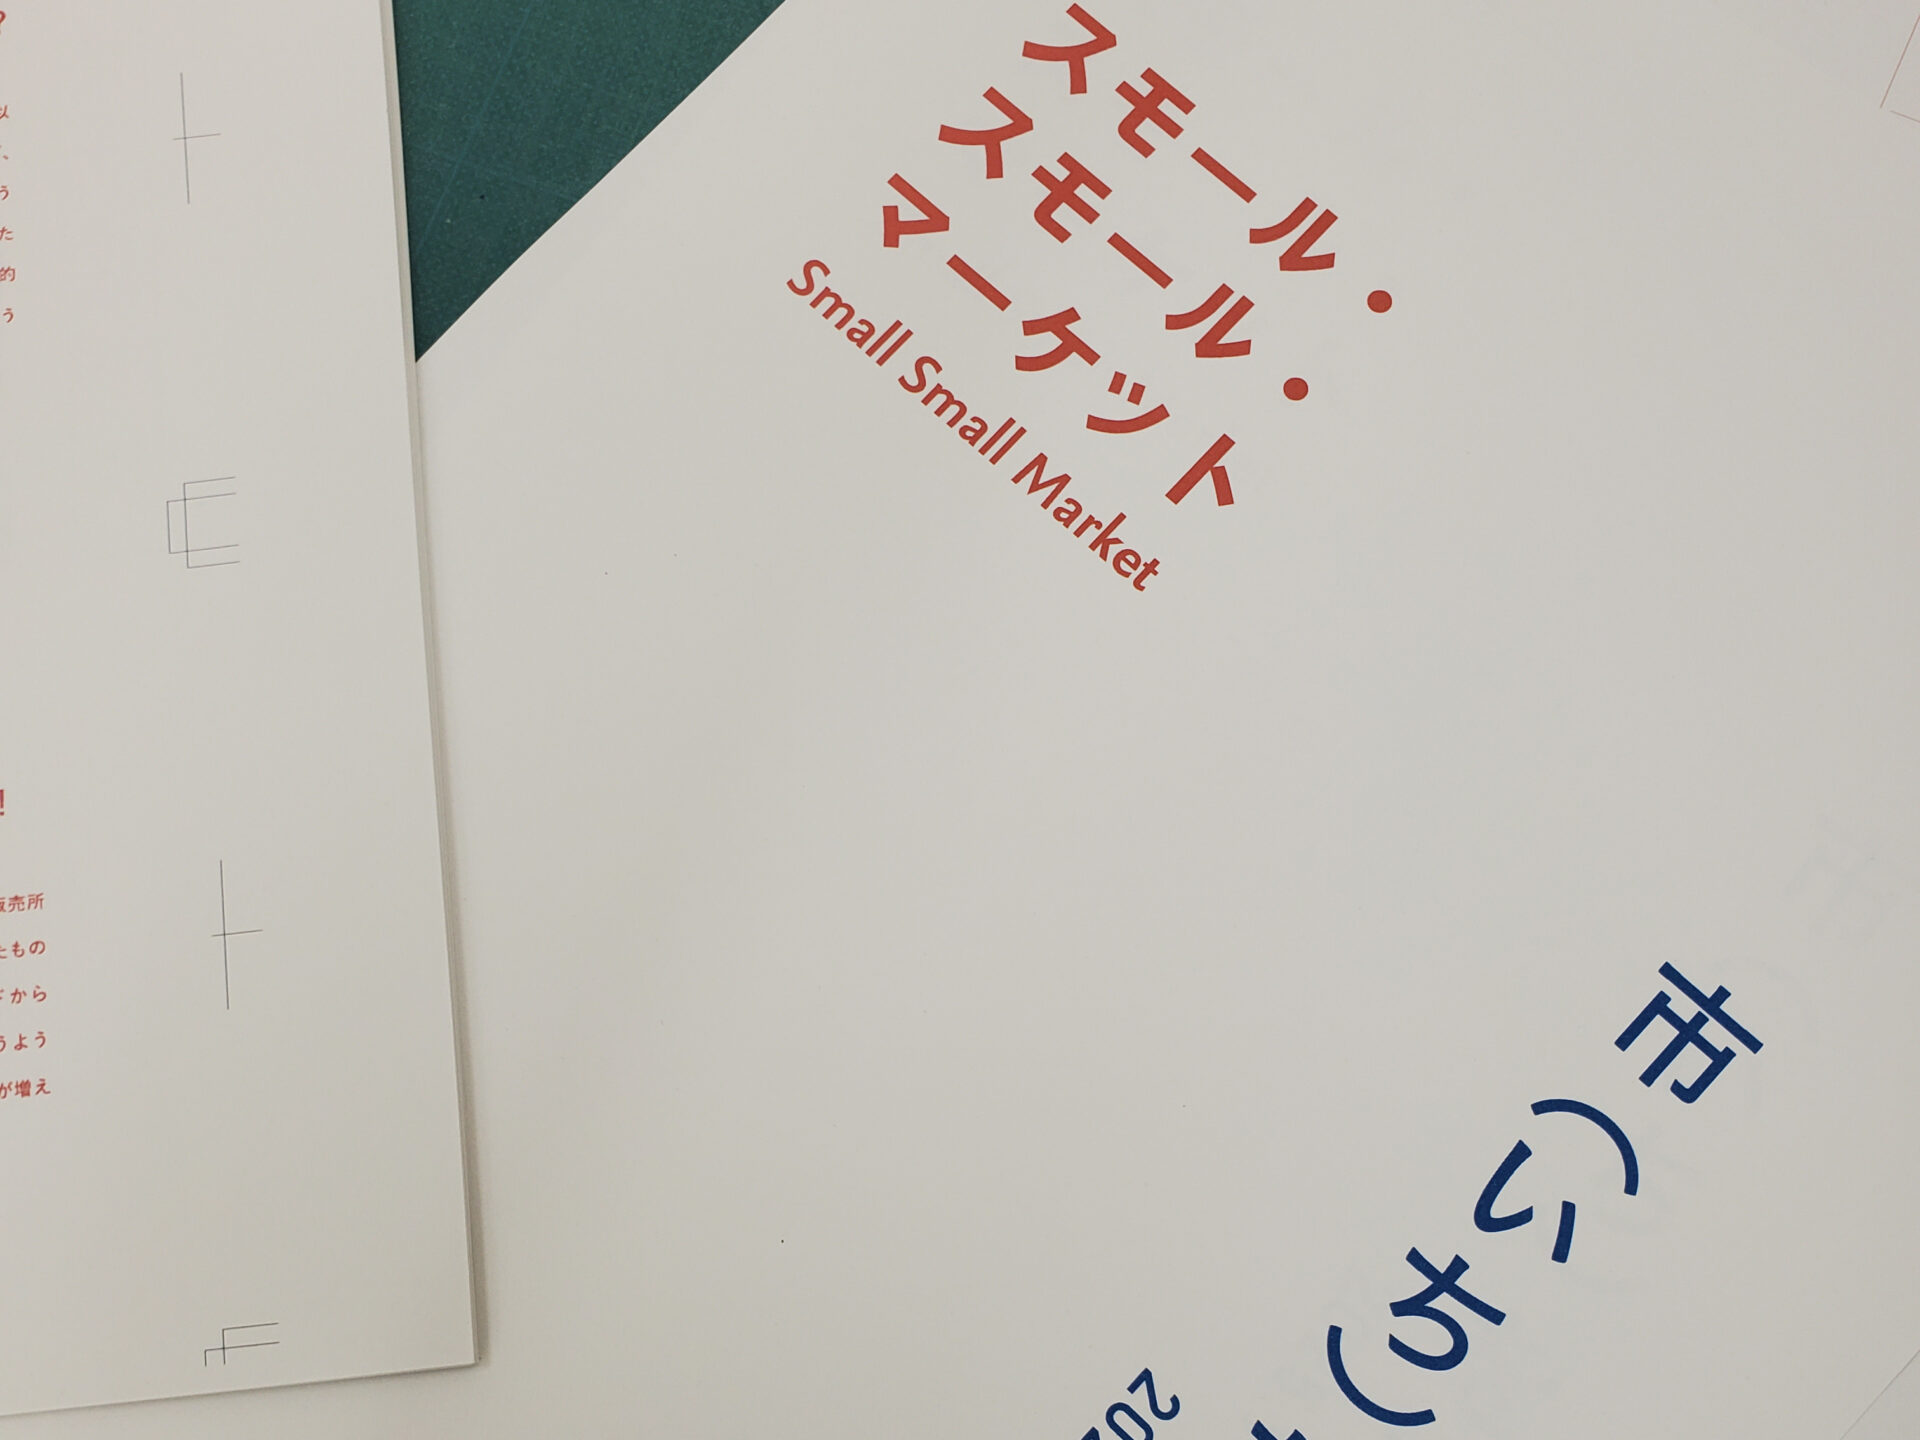 スモール・
スモール・
マーケット
Small Small Market
市(いち)
?
う
た
的
う
!
販売所
たもの
から
うよう
が増え